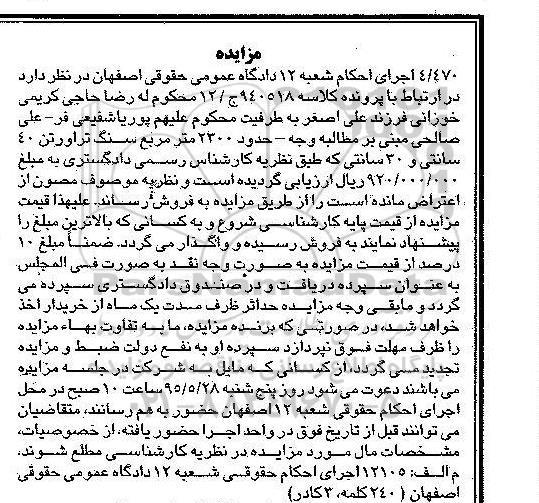 مزایده
۴/۴۷۰ اجرای احکام شعبه ۱۲ دادگاه عمومی حقوقی اصفهان در نظر دارد
در ارتباط با پرونده کلاسه ۹۴۰۵۱۸ج/۱۲ محکوم له رضا حاجی کریمی
خوزانی فرزند علی اصغر به طرفیت محکوم علیهم پوریا شفیعی فر- علی
صالحی مبنی بر مطالبه وجه – حدود ۲۳۰۰ متر مربع سنگ تراورتن ۴۰
سانتی و ۳۰ سانتی که طبق نظریه کارشناس رسمی دادگستری به مبلغ
۹۲۰/۰۰۰/۰۰۰ ریال ارزیابی گردیده است و نظریه موصوف مصون از
اعتراض مانده است را از طریق مزایده به فروش رساند. علیهذا قیمت
مزایده از قیمت پایه کارشناسی شروع و به کسانی که بالاترین مبلغ را
پیشنهاد نمایند به فروش رسیده و واگذار می گردد. ضمناً مبلغ ۱۰
درصد از قیمت مزایده به صورت وجه نقد به صورت فی المجلس
به عنوان سپرده دریافت و در صندوق دادگستری سپرده می
گردد و مابقی وجه مزایده حداکثر ظرف مدت یک ماه از خریدار اخذ
خواهد شد، در صورتی که برنده مزایده، ما به تفاوت بهاء مزایده
را ظرف مهلت فوق نپردازد سپرده او به نفع دولت ضبط و مزایده
تجدید می گردد، از کسانی که مایل به شرکت در جلسه مزایده
می باشند دعوت می شود روز پنج شنبه ۹۵/۵/۲۸ ساعت ۱۰ صبح در محل
اجرای احکام حقوقی شعبه ۱۲ اصفهان حضور به هم رسانند، متقاضیان
می توانند قبل از تاریخ فوق در واحد اجرا حضور یافته، از خصوصیات،
مشخصات مال مورد مزایده در نظریه کارشناسی مطلع شوند.
م الف: ۱۲۱۰۵ اجرای احکام حقوقی شعبه ۱۲ دادگاه عمومی حقوقی
اصفهان (۲۴۰ کلمه، ۳ کادر)